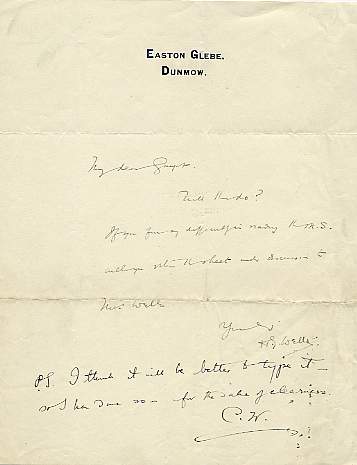 EASTON GLEBE,
DUNMOW.
My dear
Will this do?
If you find any difficulty in reading the M.S.
will you return the sheet under discussion to
Mrs Wells
Yours
H.G. Wells.
P.S. I think it will be better to type it —
so I have done so — for the sake of clearness.
C.W.